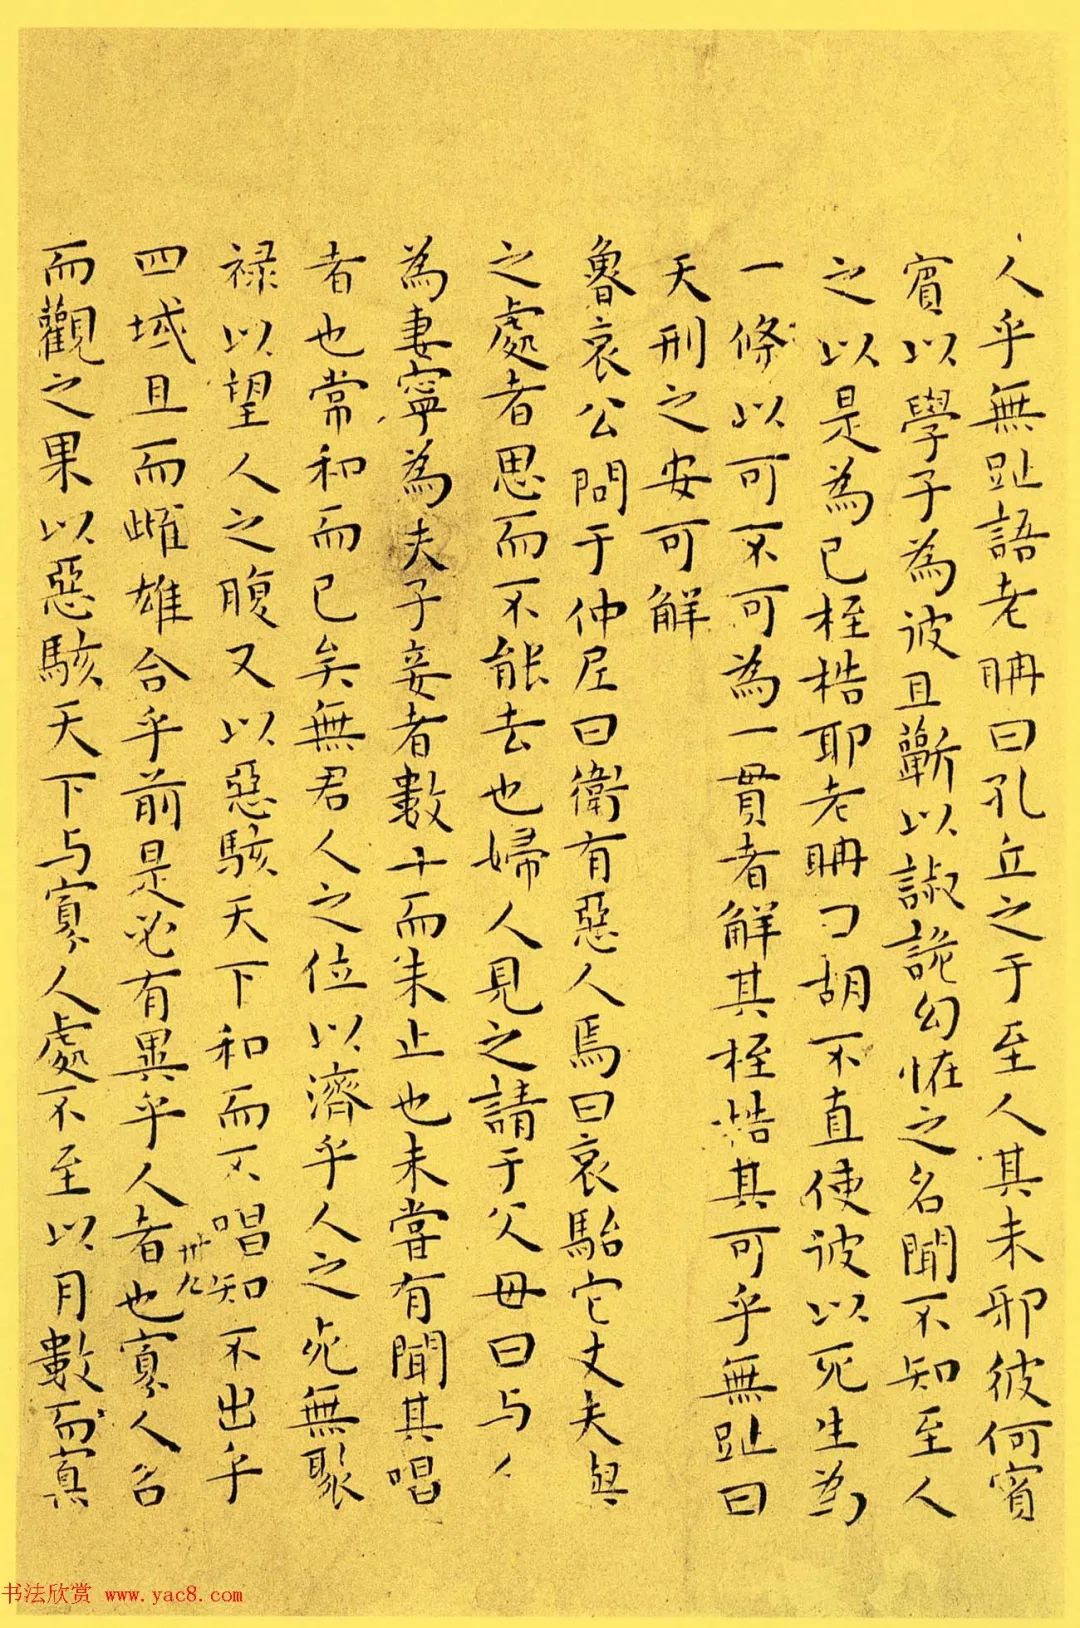 人乎無趾語老聃曰孔丘之于至人其未邪彼何賓
賓以學子為彼且蘄以諔詭幻怪之名聞不知至人
之以是為已桎梏耶老聃曰胡不直使彼以死生為
一條以可不可為一貫者解其桎梏其可乎無趾曰
天刑之安可解
魯哀公問于仲尼曰衛有惡人焉曰哀駘它丈夫與
之處者思而不能去也婦人見之請于父母曰与人
為妻寧為夫子妾者數十而未止也未嘗有聞其唱
者也常和而已矣無君人之位以濟乎人之死無聚
禄以望人之腹又以惡駭天下和而不唱知不出乎
四域且而雌雄合乎前是必有異乎人者也寡人召
而觀之果以惡駭天下与寡人處不至以月數而寡
卅九
书法欣赏 www.yac8.com